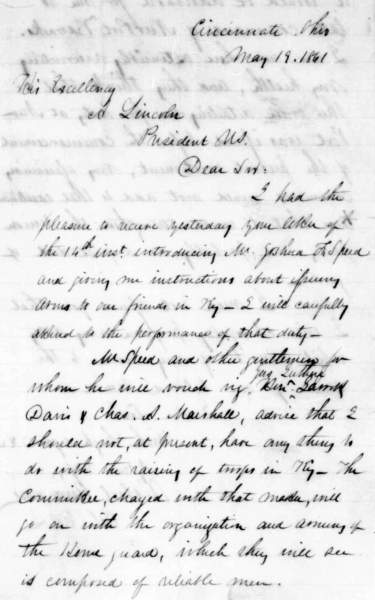 Cincinnati Ohio
May 19. 1861
His Excellency
A Lincoln
President US.
Dear Sir:
I had the
pleasure to receive yesterday your letter of
the 14th inst. introducing Mr. Joshua F. Speed
and giving me instructions about issuing
arms to our friends in Ky— I will carefully
attend to the performance of that duty—
Mr Speed and other gentlemen for
whom he will vouch viz.
Davis & Chas. A. Marshall, advice that I
should not, at present, have any thing to
do with the raising of troops in Ky— The
Committee, charged with that matter, will
go on with the organization and arming of
the Home guard, which they will see
is composed of reliable men.